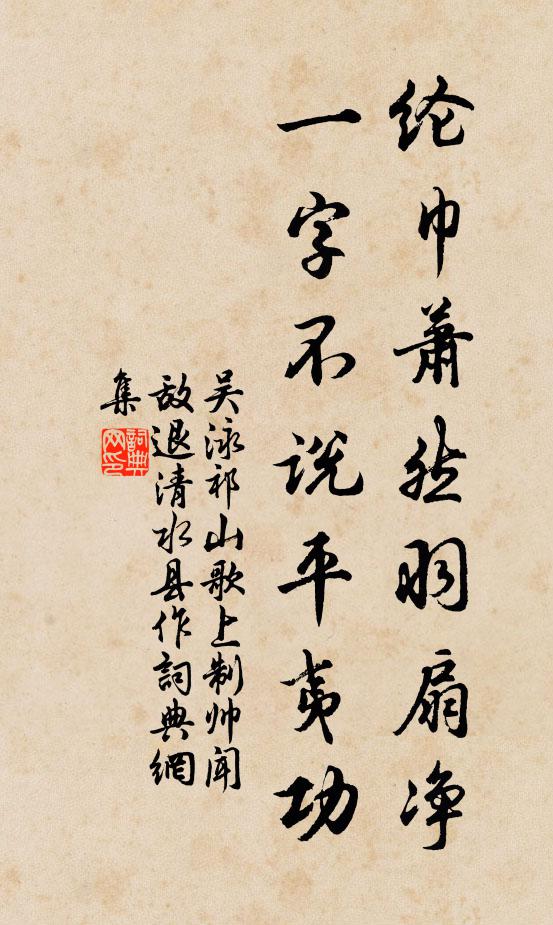 纶巾萧然羽扇净
一字不说平夷功
吴泳祁山歌上制帅闻
敌退清水县作詞典網
集
詞典网印